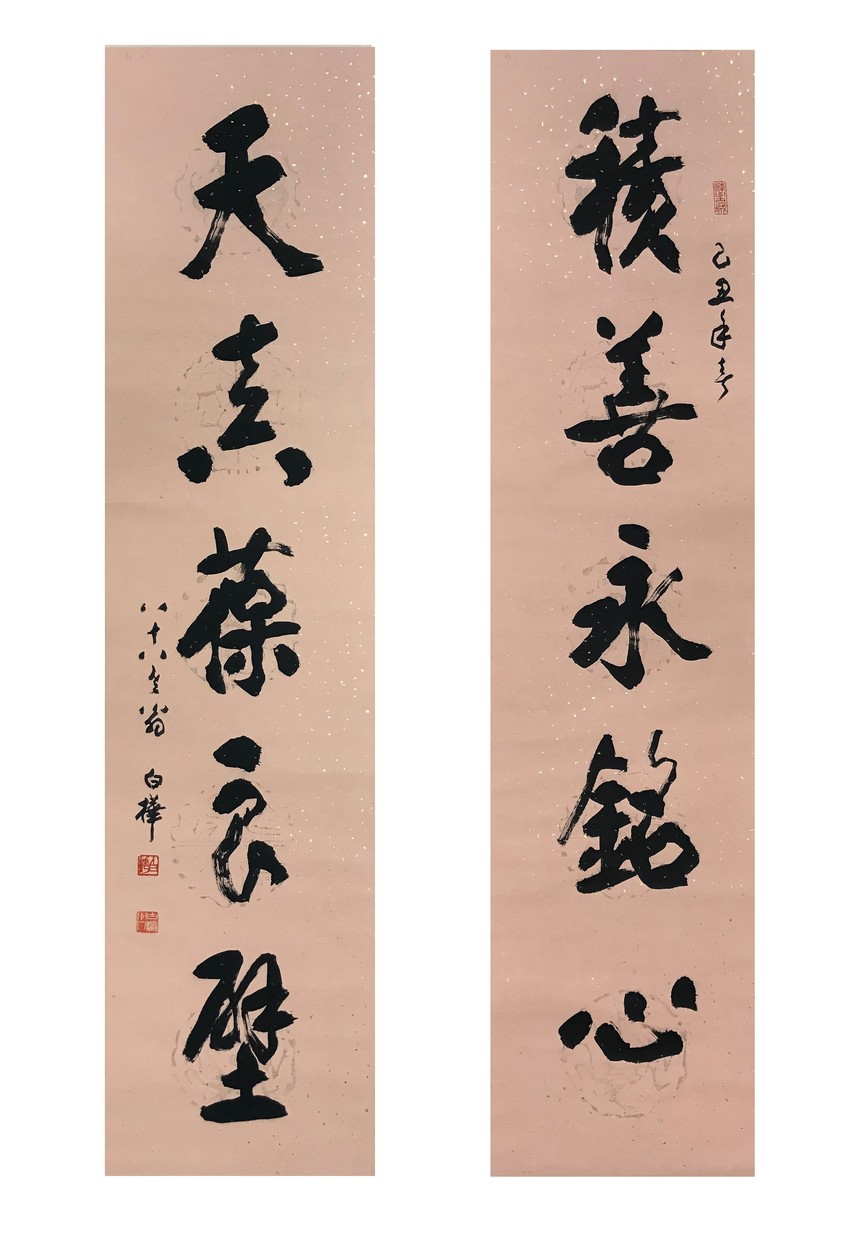 己丑年春
積善永銘心
天真葆良壁
八十八翁 白樺